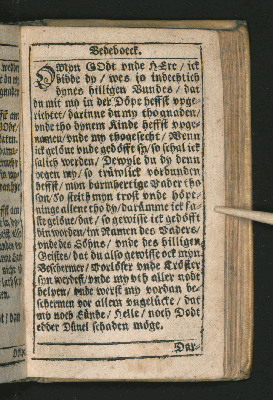 Bedeboeck.
O Myn GOdt vnde HEre / ick
bidde dy / wes jo indechtich
dynes hilligen Bundes / dat
du mit my in der Döpe heffst vpge-
richtet / darinne du my thognaden /
vnde tho dynem Kinde heffst vpge-
namen / vnde my thogesecht / Wenn
ick gelöue vnde gedöfft sy / so schal ick
salich werden / Dewyle du dy denn
yegen my / so trüwlick vorbunden
heffst / myn barmhertige Vader tho
syn / So stelth myn trost vnde höpe-
ninge allene tho dy / darümme ick fa-
ste gelöue / dat / so gewisse ick gedöfft
bin worden / im Namen des Vaders /
vnde des Söhns / vnde des hilligen
Geistes / dat du also gewisse ock myn
Beschermer / Vorlöser vnde Tröster
syn werdest / vnde my vth aller nodt
helpen / vnde werst my vordan be-
schermen vor allem vngelücke / dat
my noch Sünde / Helle / noch Dodt
edder Düuel schaden möge.
Dar-